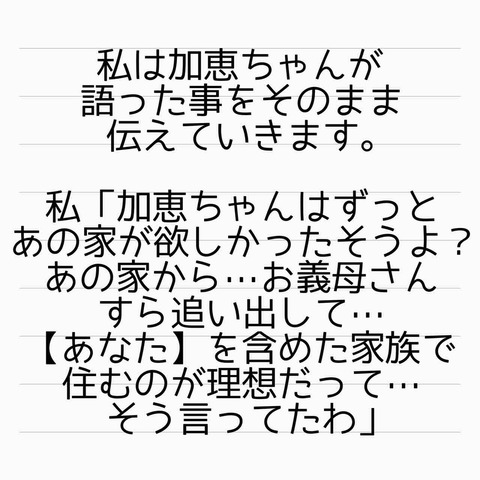 私は加恵ちゃんが
語った事をそのまま
伝えていきます。
私「加恵ちゃんはずっと
あの家が欲しかったそうよ？
あの家から…お義母さん
すら追い出して…
【あなた】を含めた家族で
住むのが理想だって…
そう言ってたわ」